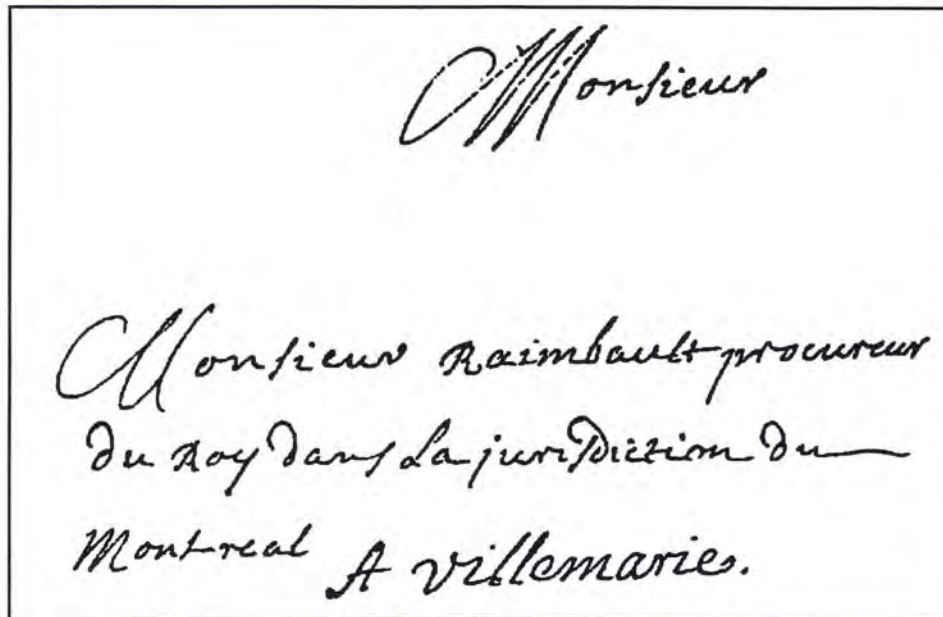 Monsieur
Monsieur Raimbault procureur
du Roy dans La jurisdiction du
Montreal A villemarie.